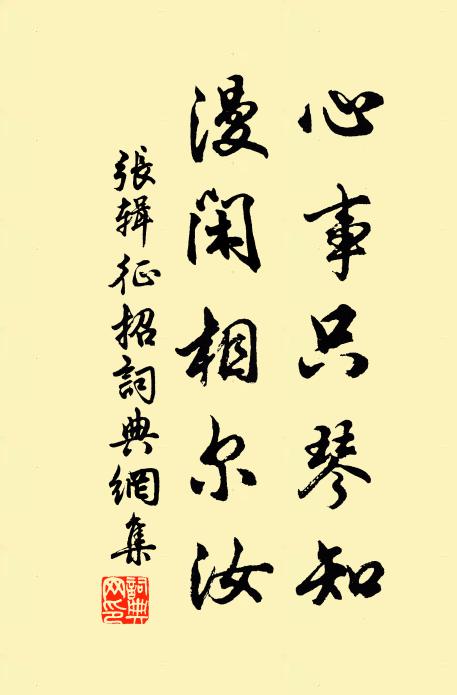 心事只琴知
漫闲相尔汝
張辑征招詞典網集
詞典网印